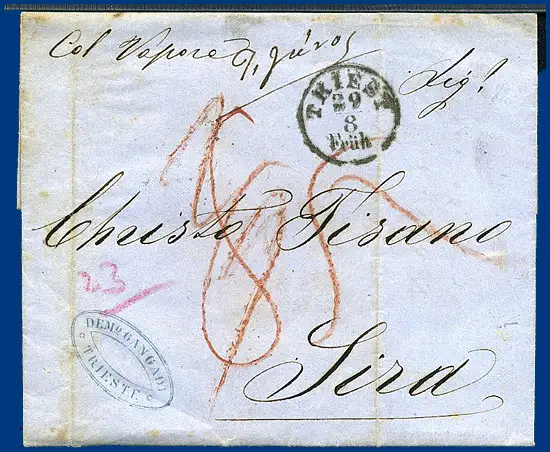 Col Vapore
Sig!
TRIEST
29
8
Früh
Christo Fisano
Sira
23
DEMo. GANGADI
TRIESTE